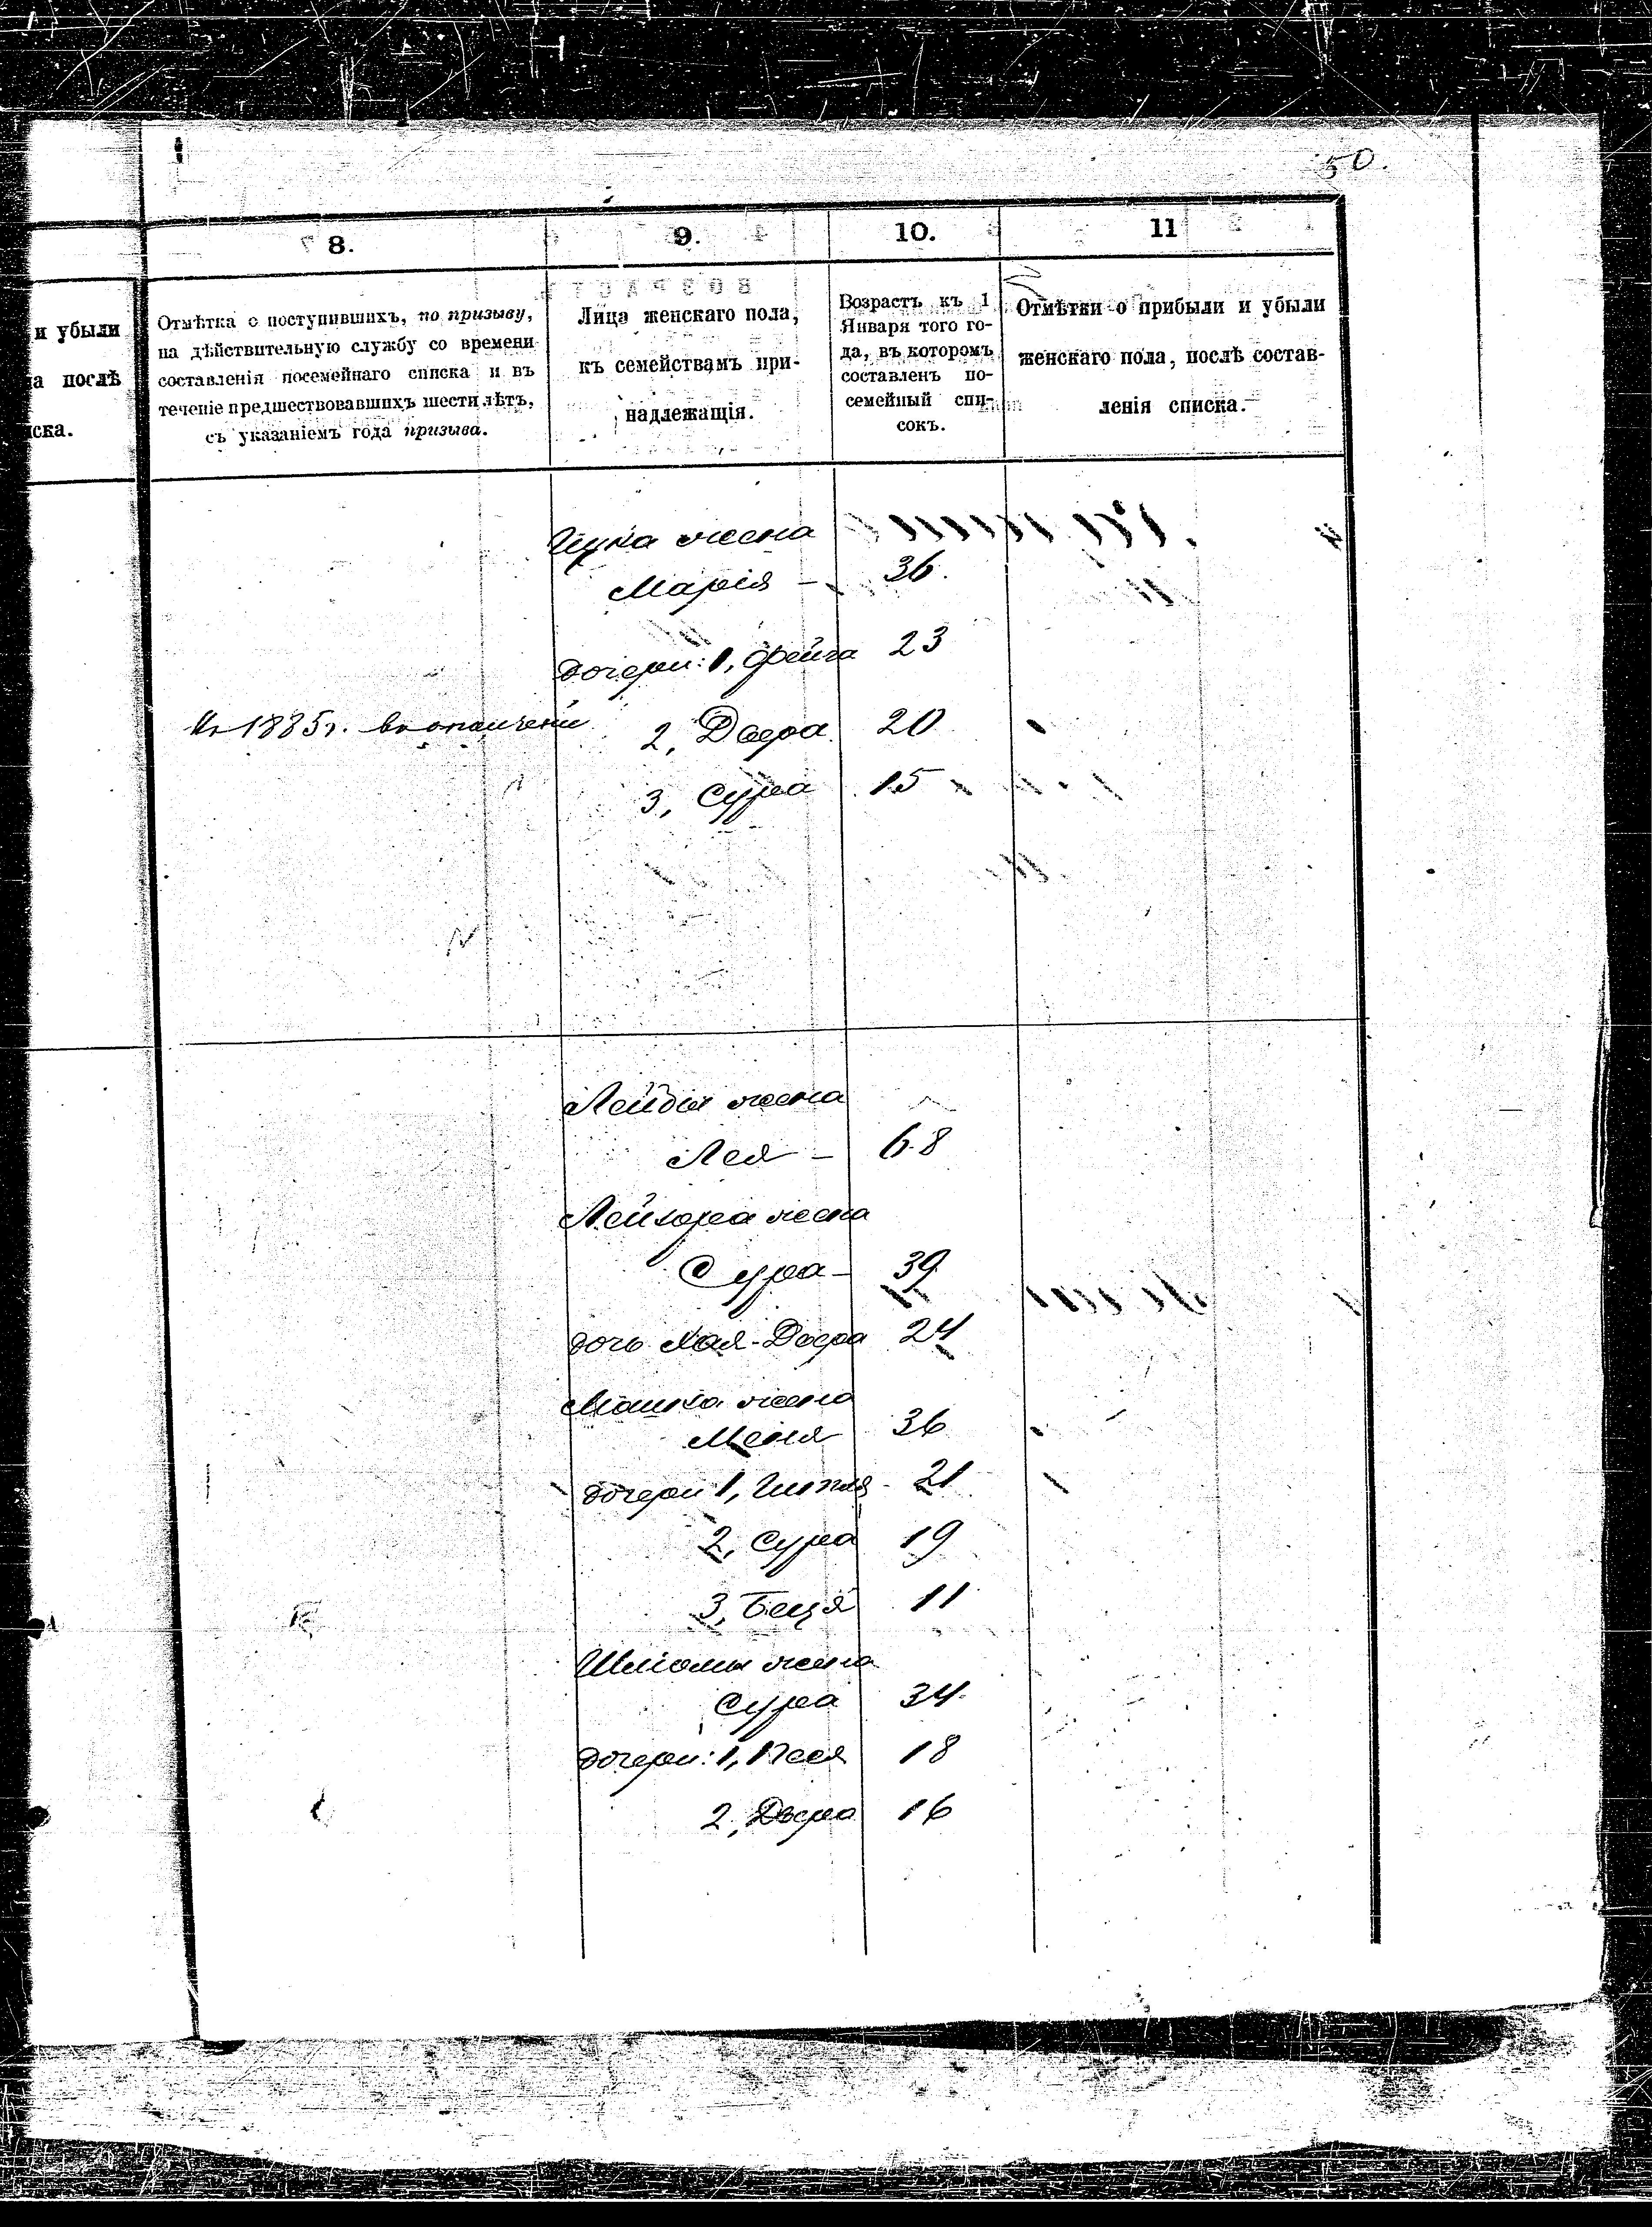 50.
8.
9.
10.
11
и убыли
а послѣ
иска.
Отмѣтка о поступившихъ, по призыву,
на дѣйствительную службу со времени
составленія посемейнаго списка и въ
теченіе предшествовавшихъ шести лѣтъ,
съ указаніемъ года призыва.
Лица женскаго пола,
къ семействамъ при-
надлежащія.
Возрастъ къ 1
Января того го-
да, въ которомъ
составленъ по-
семейный спи-
сокъ.
Отмѣтки о прибыли и убыли
женскаго пола, послѣ состав-
ленія списка.
жена
Марія — 36.
дочери: 1, Фейга 23
1885г. в ополчении
2, Двера 20
3, Сура 15
Лейбы жена
Лея — 68
Лейзора жена
Сура — 39
дочь Хая-Двера 24
Мошка жена
Меня 36
дочери 1, Гитля - 21
2, Сура 19
3, Беця 11
Шліомы жена
Сура 34
дочери: 1, Песя 18
2, Двера 16